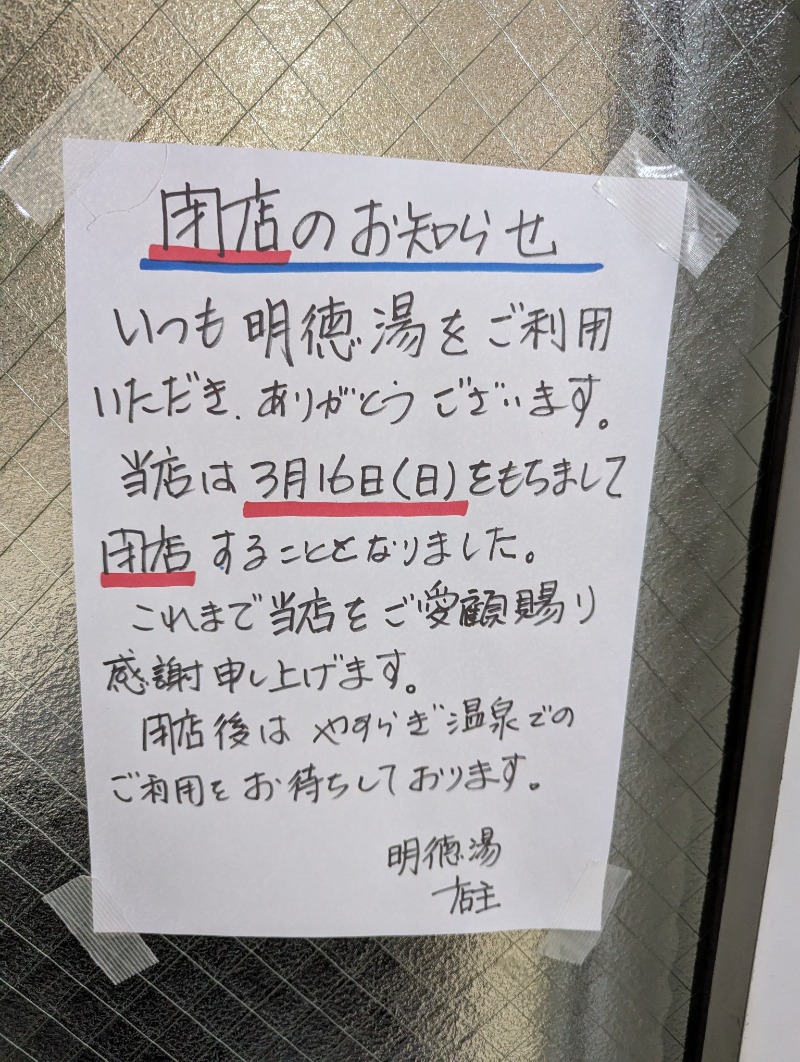 閉店のお知らせ
いつも明徳湯をご利用
いただき、ありがとうございます。
当店は3月16日(日)をもちまして
閉店することとなりました。
これまで当店をご愛顧賜り
感謝申し上げます。
閉店後はやすらぎ温泉での
ご利用をお待ちしております。
明徳湯
店主